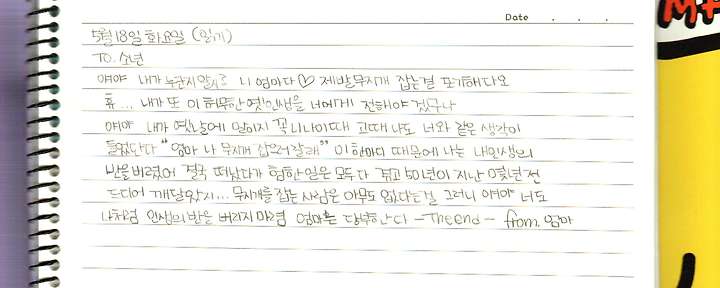 Date . . .
5월 18일 화요일 (일기)
TO. 소년
얘야 내가 누군지 알지? 니 엄마다♡ 제발 무지개 잡는걸 포기해다오
휴... 내가 또 이 허무한 옛 인생을 너에게 전해야 겠구나
얘야 내가 옛날에 말이지 꼭 니 나이 때 고때 나도 너와 같은 생각이
들었단다 "엄마 나 무지개 잡으러 갈래" 이 한마디 때문에 나는 내 인생의
반을 버렸어 결국 떠났다가 험한 일은 모두 다 겪고 50년이 지난 몇년 전
드디어 깨달았지... 무지개를 잡는 사람은 아무도 없다는 걸 그러니 얘야 너도
나처럼 인생의 반을 버리지 마렴 엄마는 당부한다 -The end- from. 엄마